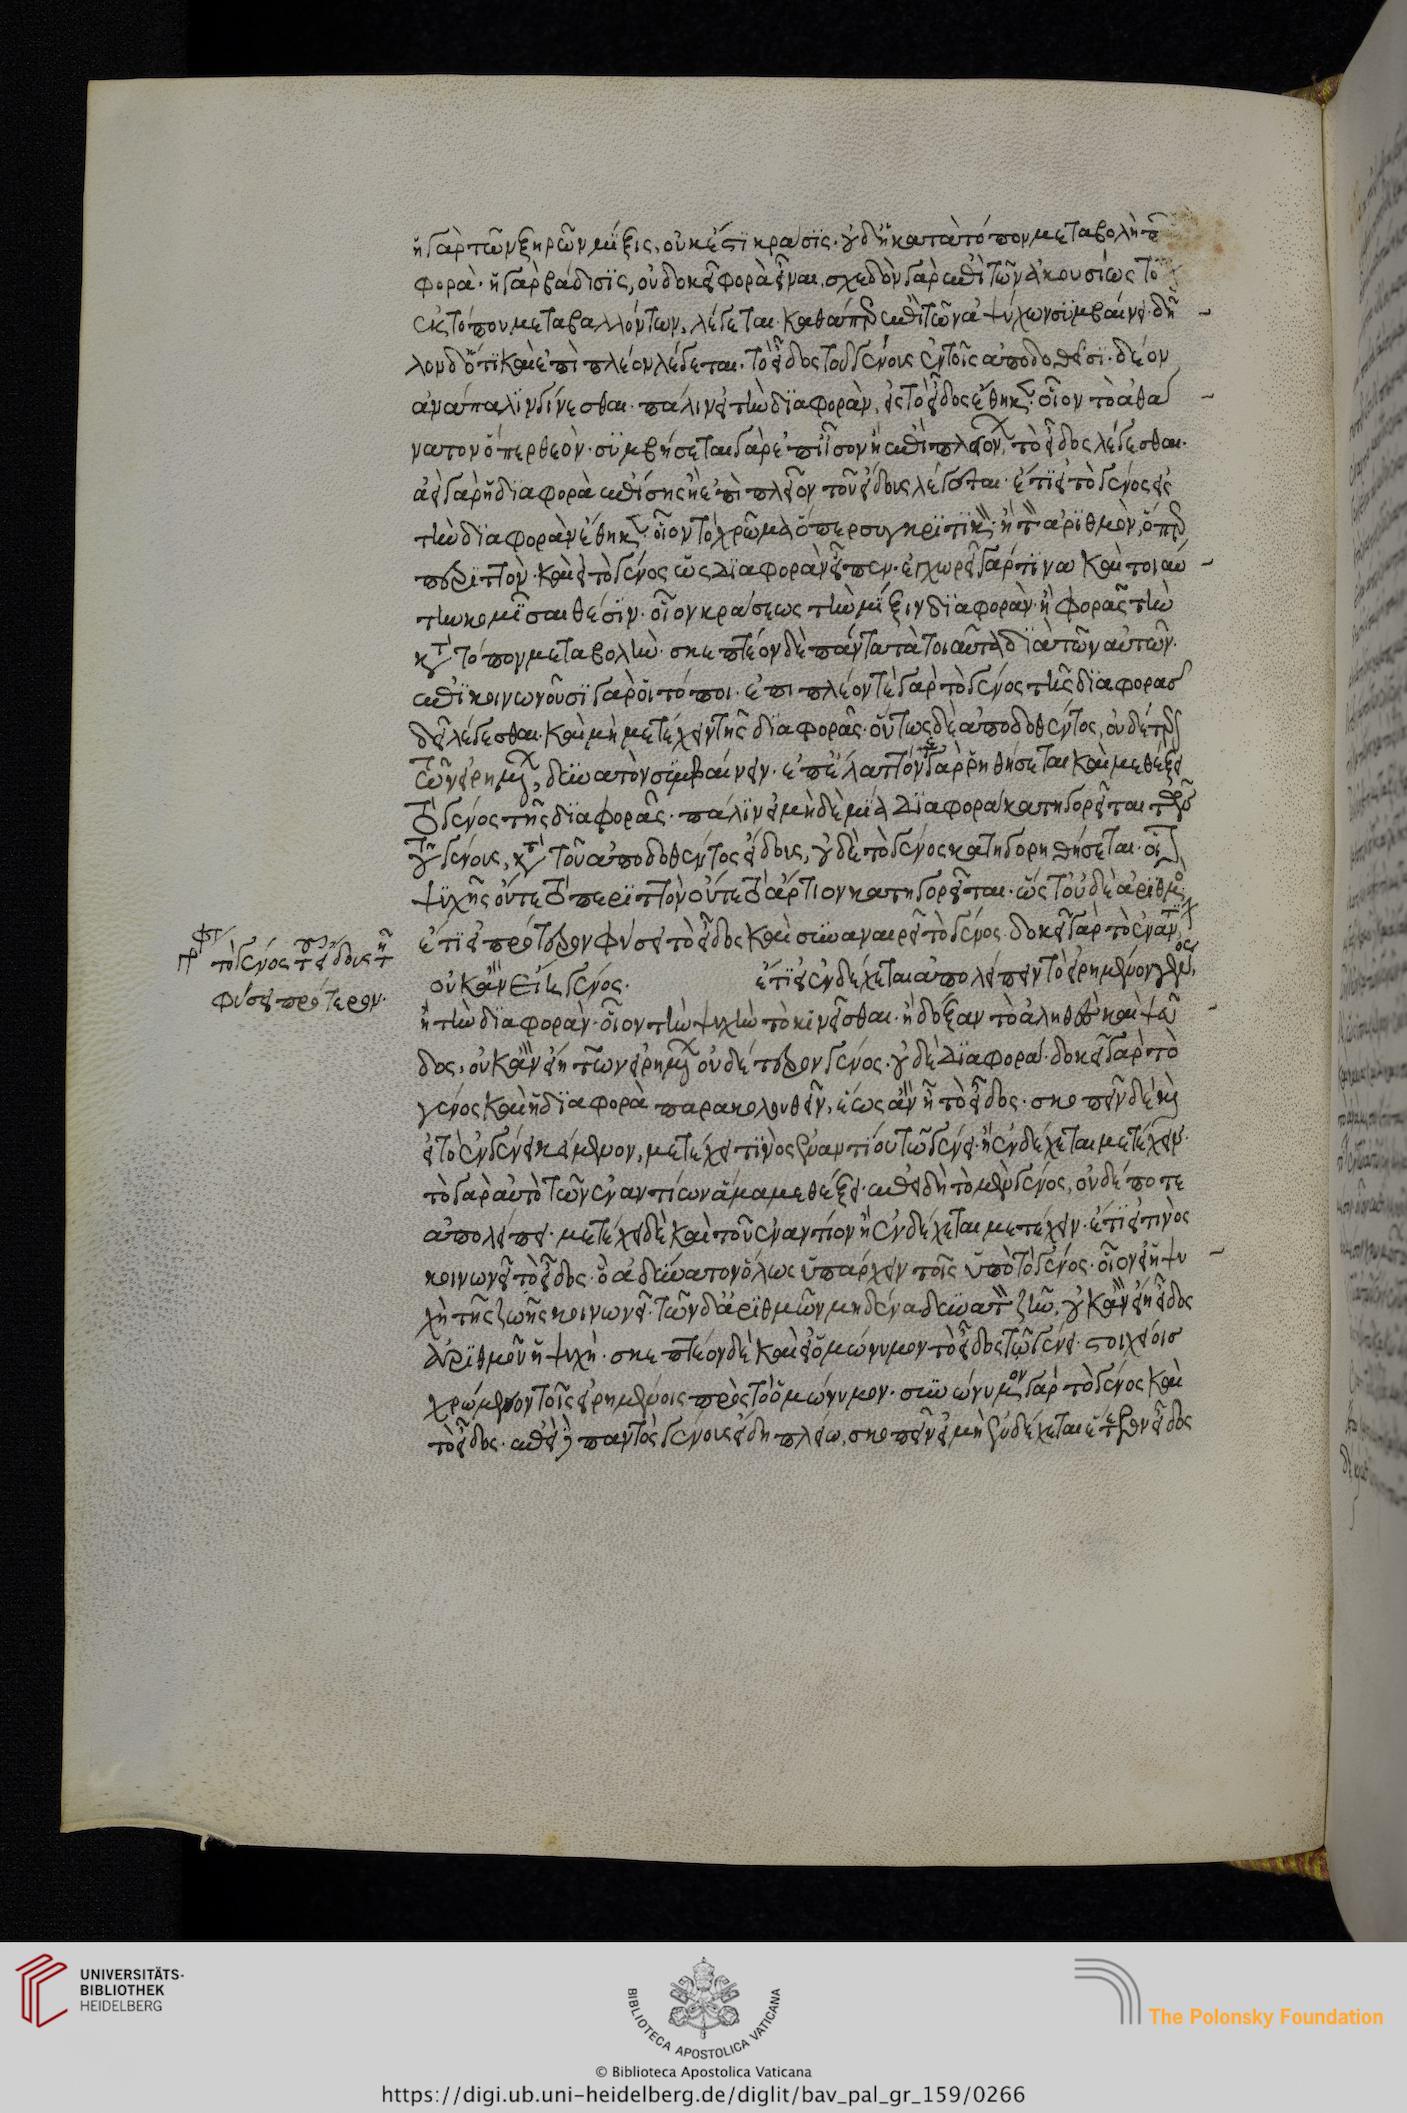 ἡ γὰρ τῶν ξηρῶν μίξις, οὐκ ἔστι κράσις· οὐδ' ἡ κατὰ τόπον μεταβολὴ π
φορά· ἡ γὰρ βάδισις, οὐ δοκεῖ φορὰ εἶναι. σχεδὸν γὰρ ἐπὶ τῶν ἀκουσίως τό
ἐκ τόπου μεταβαλλόντων, λέγεται· καθάπερ ἐπὶ τῶν ἀψύχων συμβαίνει· δῆ
λον δ' ὅτι καὶ ἐπὶ πλέον λέγεται· τὸ εἶδος τοῦ γένους ἐν τοῖς ἀποδοθεῖσι· δέον
ἀνάπαλιν γίνεσθαι· πάλιν εἰ τὴν διαφορὰν, εἰς τὸ εἶδος ἔθηκεν· οἷον τὸ ἀθά
νατον ὅπερ θεόν· συμβήσεται γὰρ ἐπ' ἴσον ἢ ἐπὶ πλεῖον, τὸ εἶδος λέγεσθαι·
ἀεὶ γὰρ ἡ διαφορὰ ἐπίσης ἢ ἐπὶ πλεῖον τοῦ εἴδους λέγεται· ἔτι εἰ τὸ γένος εἰς
τὴν διαφορὰν ἔθηκεν· οἷον τὸ χρῶμα ὅπερ συγκριτικόν· ἢ τὸν ἀριθμὸν, ὅπερ
περιττόν· καὶ εἰ τὸ γένος ὡς διαφορὰν εἶπεν· ἐγχωρεῖ γάρ τινα καὶ τοιαύ
την κομίσαι θέσιν· οἷον κράσεως τὴν μίξιν διαφορὰν· ἢ φορᾶς τὴν
κατὰ τόπον μεταβολὴν· σκεπτέον δὲ πάντα τὰ τοιαῦτα διὰ τῶν αὐτῶν·
ἐπικοινωνοῦσι γὰρ οἱ τόποι· ἐπι πλέον τὲ γὰρ τὸ γένος τῆς διαφορᾶσ
δεῖ λέγεσθαι· καὶ μὴ μετέχειν τῆς διαφορᾶς· οὕτως δὲ ἀποδοθέντος, οὐδέτερον
τῶν εἰρημένων, δυνατὸν συμβαίνειν· ἐπ' ἔλαττόν τε γὰρ ῥηθήσεται καὶ μεθέξει
τὸ γένος τῆς διαφορᾶς· πάλιν εἰ μηδὲ μία διαφορὰ κατηγορεῖται τῶν
τοῦ γένους, κατὰ τοῦ ἀποδοθέντος εἴδους, οὐδὲ τὸ γένος κατηγορηθήσεται· οἷον
ψυχῆς οὔτε τὸ περιττὸν οὔτε τὸ ἄρτιον κατηγορεῖται· ὥστ' οὐδὲ ἀριθμός
ἔτι εἰ πρότερον φύσει τὸ εἶδος καὶ συναναιρεῖ τὸ γένος· δοκεῖ γὰρ τὸ ἐναντίον
πρ τὸ γένος τοῦ εἴδους τῆ
φύσει πρότερον·
οὐκ ἂν εἴη γένος· ἔτι εἰ ἐνδέχεται ἀπολείπειν τὸ εἰρημένον γένος,
ἢ τὴν διαφορὰν· οἷον τὴν ψυχὴν τὸ κινεῖσθαι· ἢ δόξαν τὸ ἀληθὲς καὶ ψεῦ
δος, οὐκ ἂν εἴη τῶν εἰρημένων οὐδέτερον γένος· οὐδὲ διαφορά· δοκεῖ γὰρ τὸ
γένος καὶ ἡ διαφορὰ παρακολουθεῖν, ἕως ἂν ἦ τὸ εἶδος· σκοπεῖν δὲ καὶ
εἰ τὸ ἐν γένει κείμενον, μετέχει τινὸς ἐναντίου τῶ γένει· ἢ ἐνδέχεται μετέχειν·
τὸ γὰρ αὐτὸ τῶν ἐναντίων ἅμα μεθέξει· ἐπειδὴ τὸ μὲν γένος, οὐδέποτε
ἀπολείπει· μετέχει δὲ καὶ τοῦ ἐναντίου ἢ ἐνδέχεται μετέχειν· ἔτι εἰ τινὸς
κοινωνεῖ τὸ εἶδος· ὃ ἀδύνατον ὅλως ὑπάρχειν τοῖς ὑπὸ τὸ γένος· οἷον εἰ ἡ ψυ
χὴ τῆς ζωῆς κοινωνεῖ· τῶν δ' ἀριθμῶν μηδένα δυνατὸν ζῆν, οὐκ ἂν εἴη εἶδος
ἀριθμοῦ ἡ ψυχή· σκεπτέον δὲ καὶ εἰ ὁμώνυμον τὸ εἶδος τῶ γένει· στοιχείοισ
χρώμενον τοῖς εἰρημένοις πρὸς τὸ ὁμώνυμον· συνώνυμον γὰρ τὸ γένος καὶ
τὸ εἶδος· ἐπεὶ δὲ παντὸς γένους εἴδη πλείω, σκοπεῖν εἰ μὴ ἐνδέχεται ἕτερον εἶδος
UNIVERSITÄTS-
BIBLIOTHEK
HEIDELBERG
BIBLIOTECA APOSTOLICA VATICANA
The Polonsky Foundation
© Biblioteca Apostolica Vaticana
https://digi.ub.uni-heidelberg.de/diglit/bav_pal_gr_159/0266